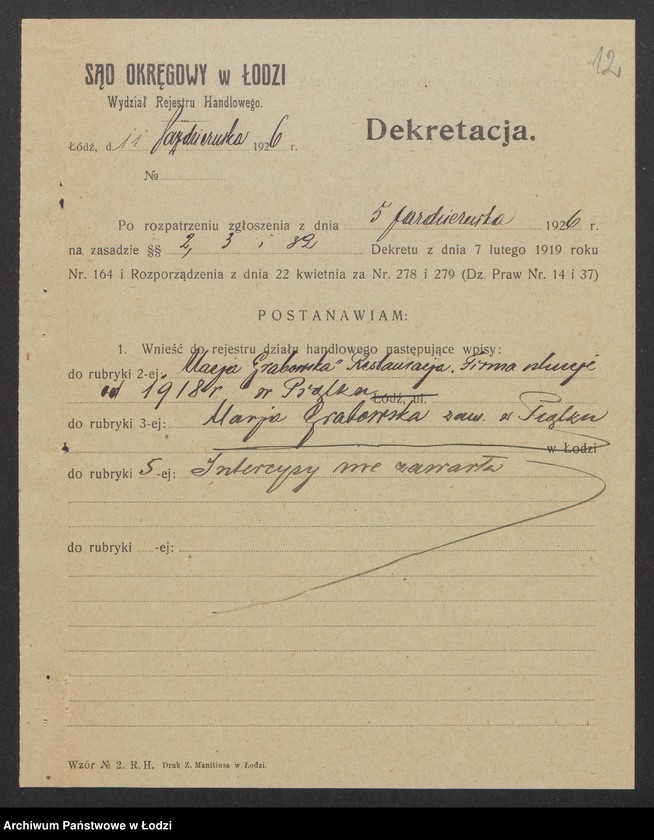 12
SĄD OKRĘGOWY w ŁODZI
Wydział Rejestru Handlowego.
Łódź, d. 11 Października 1926 r.
№
Dekretacja.
Po rozpatrzeniu zgłoszenia z dnia 5 października 1926 r.
na zasadzie §§ 2, 3 i 32 Dekretu z dnia 7 lutego 1919 roku
Nr. 164 i Rozporządzenia z dnia 22 kwietnia za Nr. 278 i 279 (Dz. Praw Nr. 14 i 37)
POSTANAWIAM:
1. Wnieść do rejestru działu handlowego następujące wpisy:
do rubryki 2-ej: "Marja Grabowska" Restauracja. Firma istnieje
od 1918 r. w Piątku Łódź, ul.
do rubryki 3-ej: Marja Grabowska zam. w Piątku
w Łodzi
do rubryki 5-ej: Intercyzy nie zawarła
do rubryki -ej:
Wzór № 2. R. H. Druk Z. Manitiusa w Łodzi.
Archiwum Państwowe w Łodzi